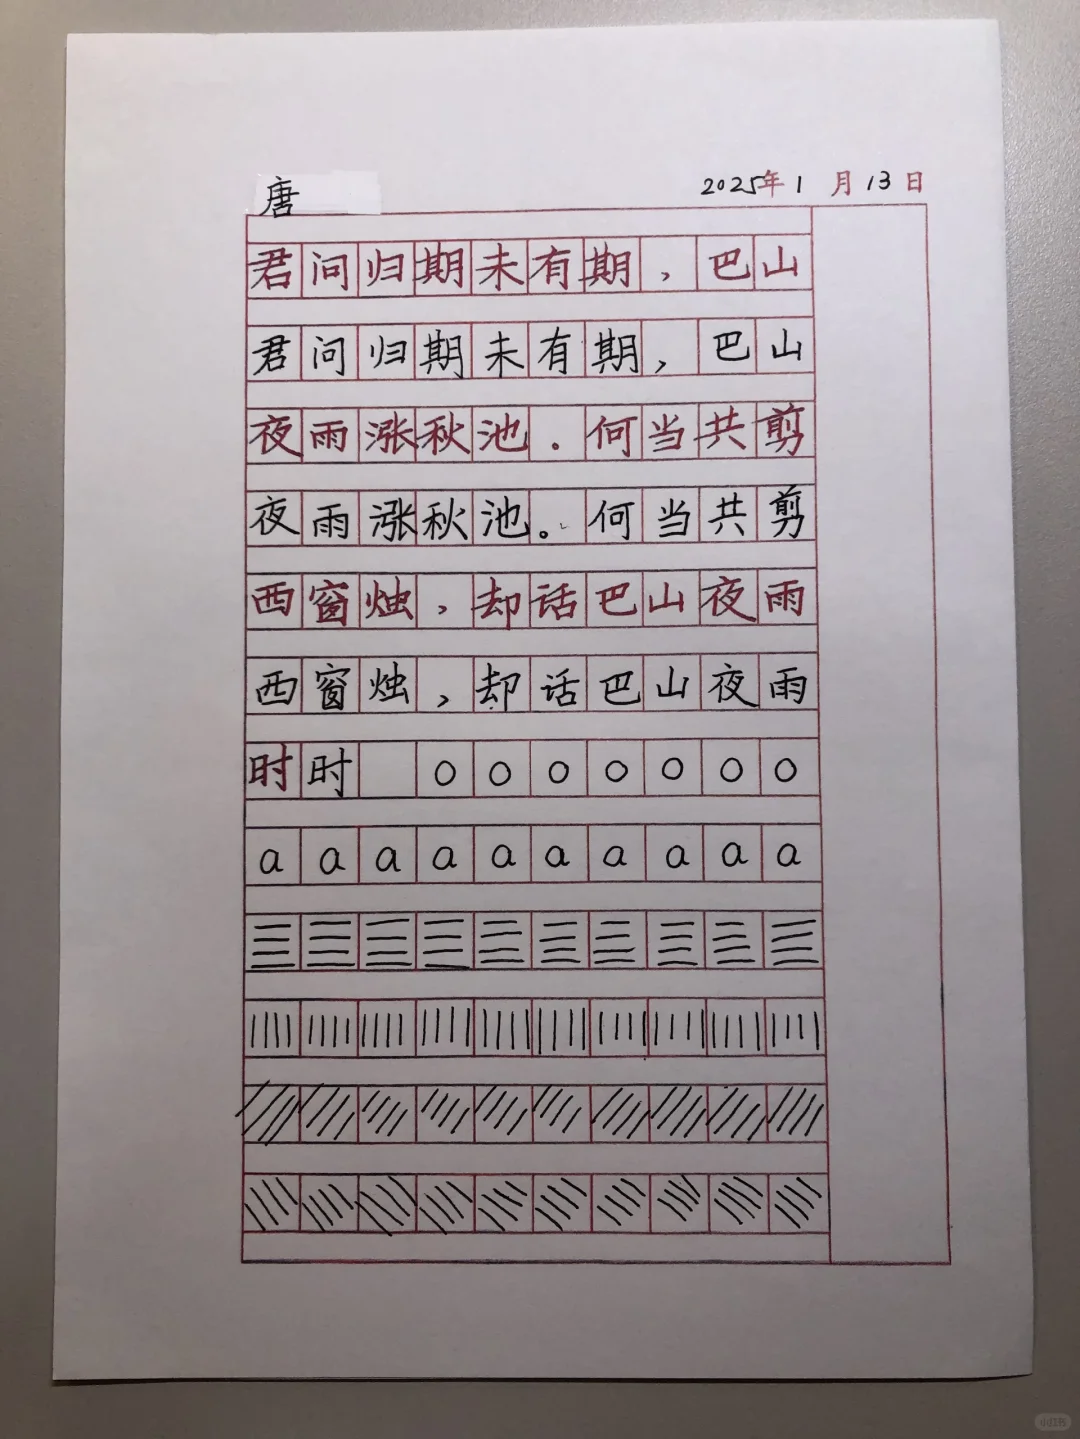 唐
2025年1月13日
君问归期未有期，巴山
君问归期未有期，巴山
夜雨涨秋池。何当共剪
夜雨涨秋池。何当共剪
西窗烛，却话巴山夜雨
西窗烛，却话巴山夜雨
时时 O O O O O O O
a a a a a a a a a a